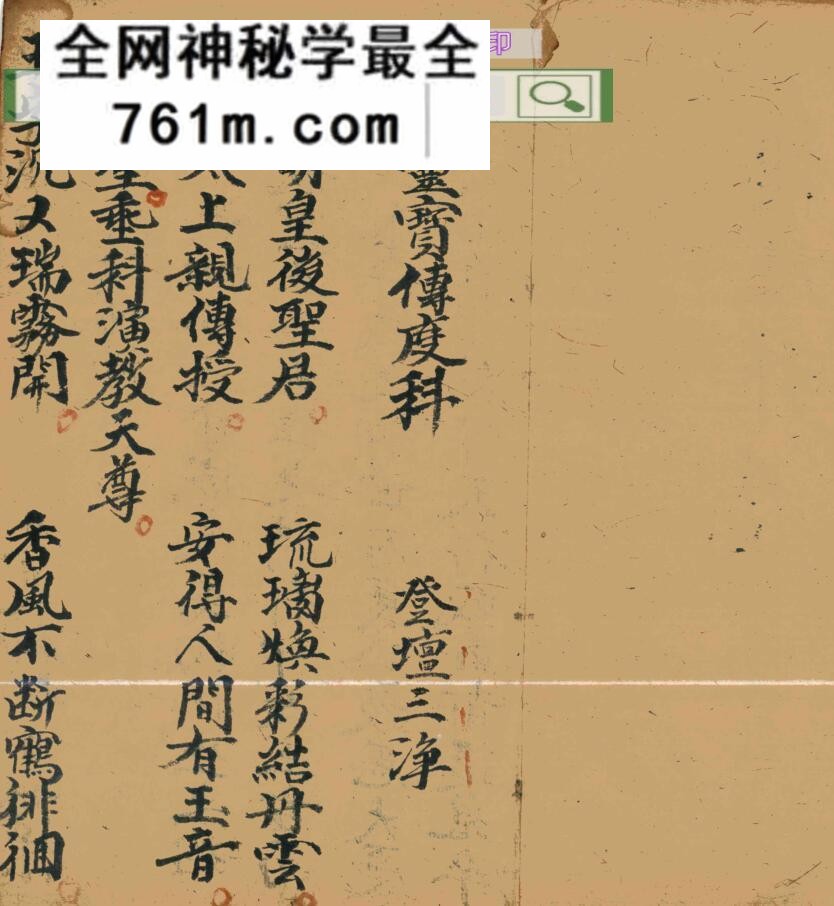 全网神秘学最全
761m.com
印
靈寶傳度科
登壇三淨
皇後聖君
琉璃煥彩結丹雲
上親傳授
安得人間有玉音
垂科演教天尊
沉又瑞霧開
香風不斷鶴徘徊